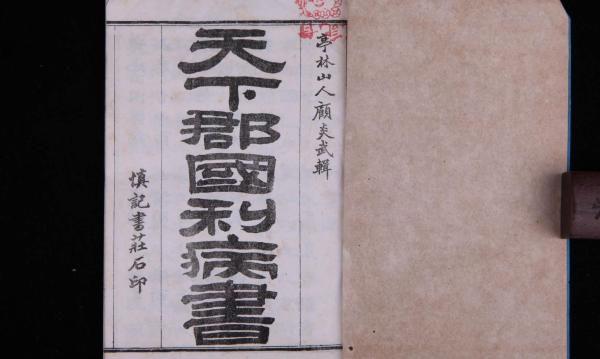 亭林山人顧炎武輯
天下郡國利病書
慎記書莊石印